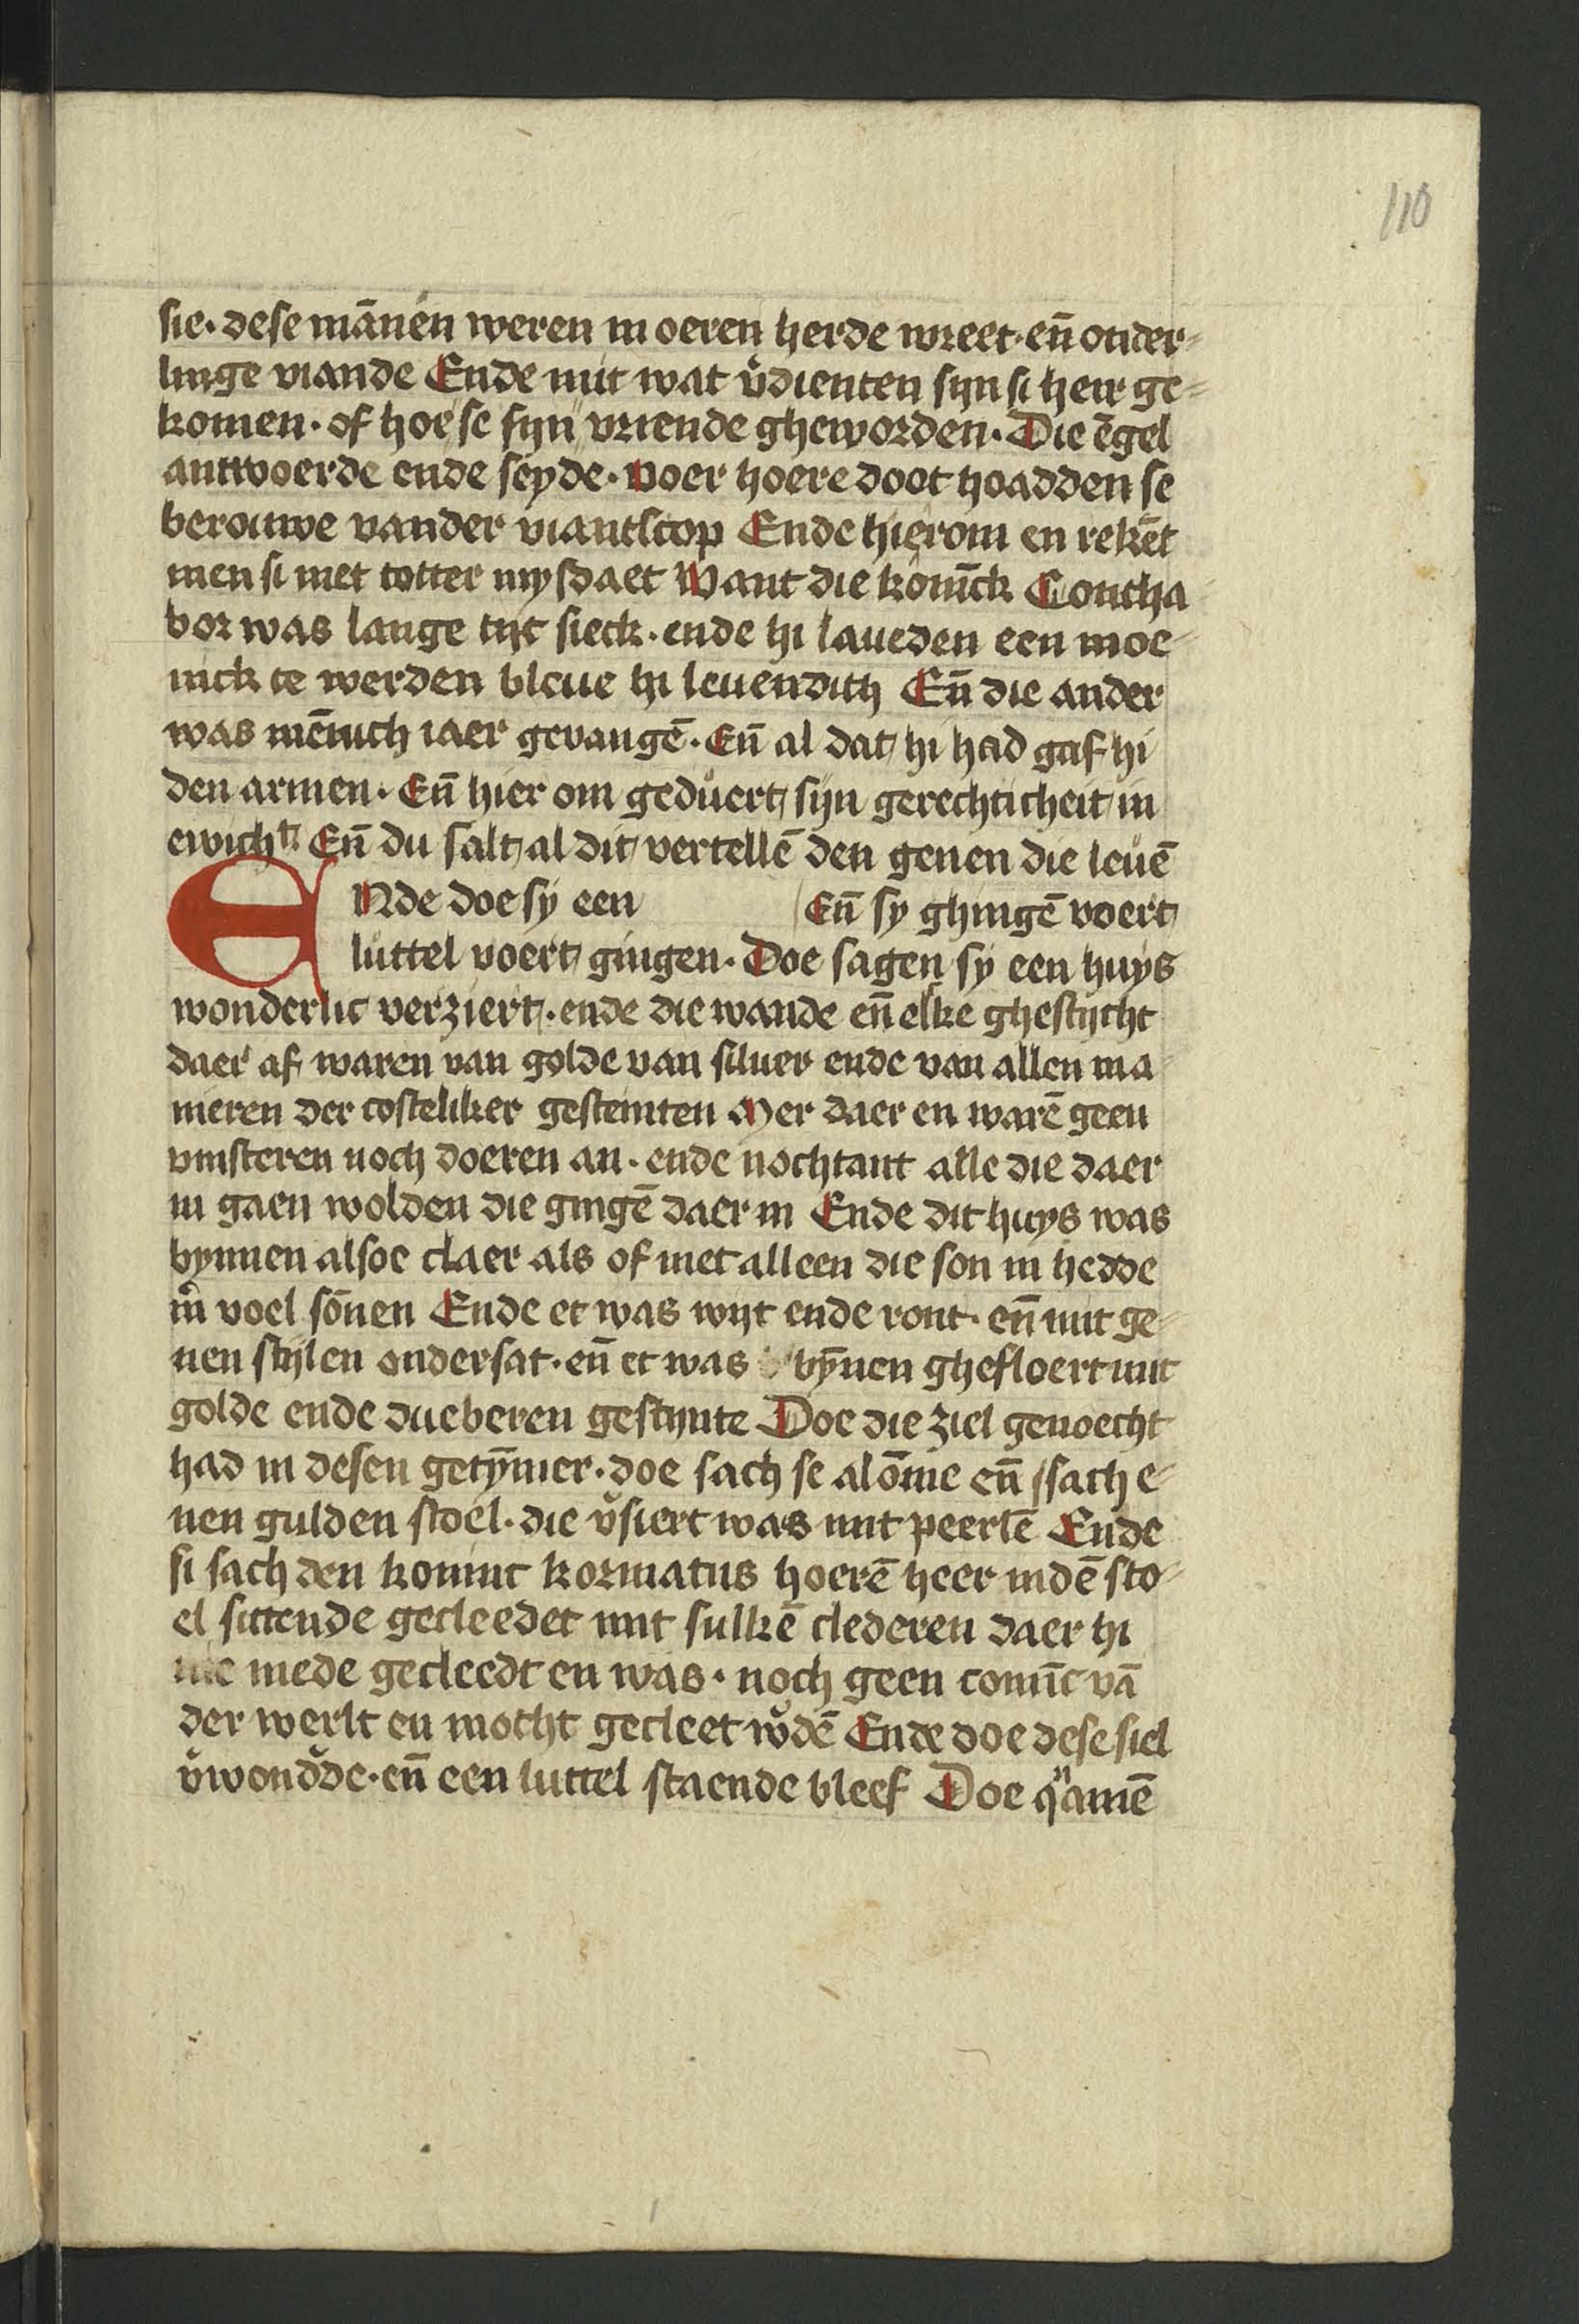 110
sie. dese mānen weren in oeren herde wreet. en̄ onder-
linge viande Ende mit wat v̾dienten syn si heir ge-
komen. of hoe se syn vriende gheworden. Die ēgel
antwoerde ende seyde. voer hoere doot hoadden se
berouwe vander viantscop Ende hierom en rekēt
men si niet totter mysdaet Want die konīck Contha
bor was lange tijt sieck. ende hi laueden een moe-
nick te werden bleue hi leuendich En̄ die ander
was mēnich iaer gevangē. En̄ al dat hi had gaf hi
den armen. En̄ hier om geduert syn gerechticheit in
ewicht En̄ du salt al dit vertellē den genen die leuē
ENde doe sy een En̄ sy ghingē voert
luttel voert gingen. Doe sagen sy een huys
wonderlic verziert. ende die wande en̄ elke ghesticht
daer af waren van golde van siluer ende van allen ma
nieren der costeliker gesteinten Mer daer en warē geen
vinsteren noch doeren an. ende nochtant alle die daer
in gaen wolden die gingē daer in Ende dit huys was
bynnen alsoe claer als of niet alleen die son in hedde
m̾ voel sōnen Ende et was wijt ende ront. en̄ mit ge-
nen stijlen ondersat. en̄ et was bȳnen ghefloert mit
golde ende dueberen gestynte Doe die ziel genoecht
had in desen getȳmer. doe sach se alōme en̄ sach e-
nen gulden stoel. die v̾siert was mit peerlē Ende
si sach den koninc kormatus hoerē heer indē sto-
el sittende gecleedet mit sulkē clederen daer hi
nie mede gecleedt en was. noch geen conīc vā
der werlt en mocht gecleet w̾dē Ende doe dese siel
v̾wond̾de. en̄ een luttel staende bleef Doe qͣamē